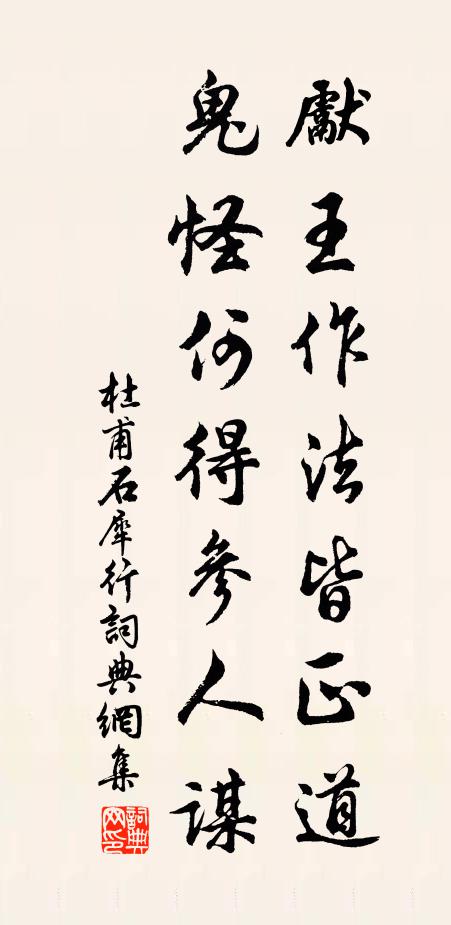 獻王作法皆正道
鬼怪何得參人謀
杜甫石犀行詞典網集
詞典网印